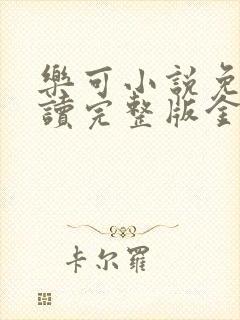 樂可小説免
讀完整版全
卡尔羅